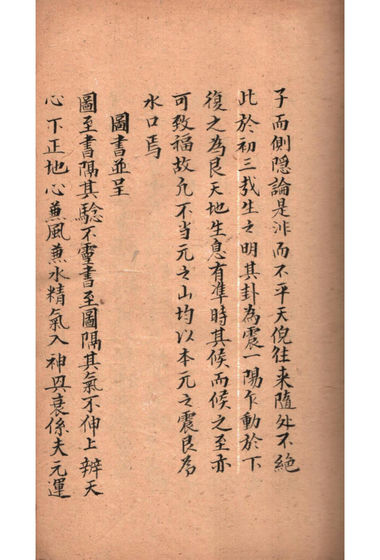 子而側隐論是非而不平天倪往来隨处不絶
此於初三哉生之明其卦為震一陽乍動於下
復之為艮天地生息有準時其候而候之至亦
可致福故凢不当元之山均以本元之震艮為
水口焉
圖書並呈
圖至書隔其騐不靈書至圖隔其氣不伸上辨天
心下正地心兼風兼水精氣入神興衰係夫元運